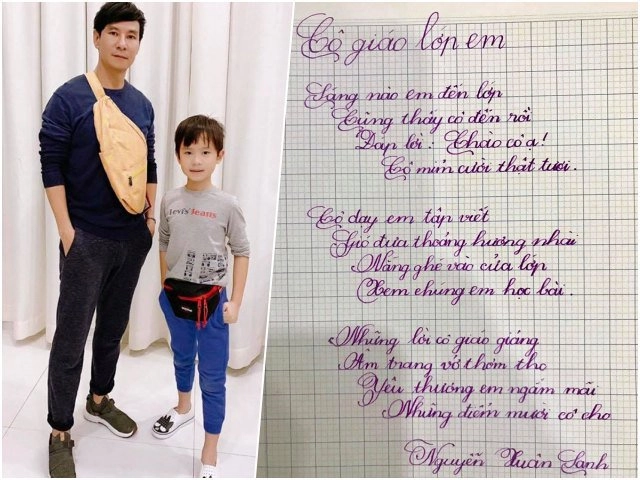 Levi's Jeans
Cô giáo lớp em
Sáng nào em đến lớp
Cũng thấy cô đến rồi
Đáp lời: "Chào cô ạ!
Cô mỉm cười thật tươi.
Cô dạy em tập viết
Gió đưa thoảng hương nhài
Nắng ghé vào cửa lớp
Xem chúng em học bài.
Những lời cô giáo giảng
Ấm trang vở thơm tho
Yêu thương em ngắm mãi
Những điểm mười cô cho
Nguyễn Xuân Sanh